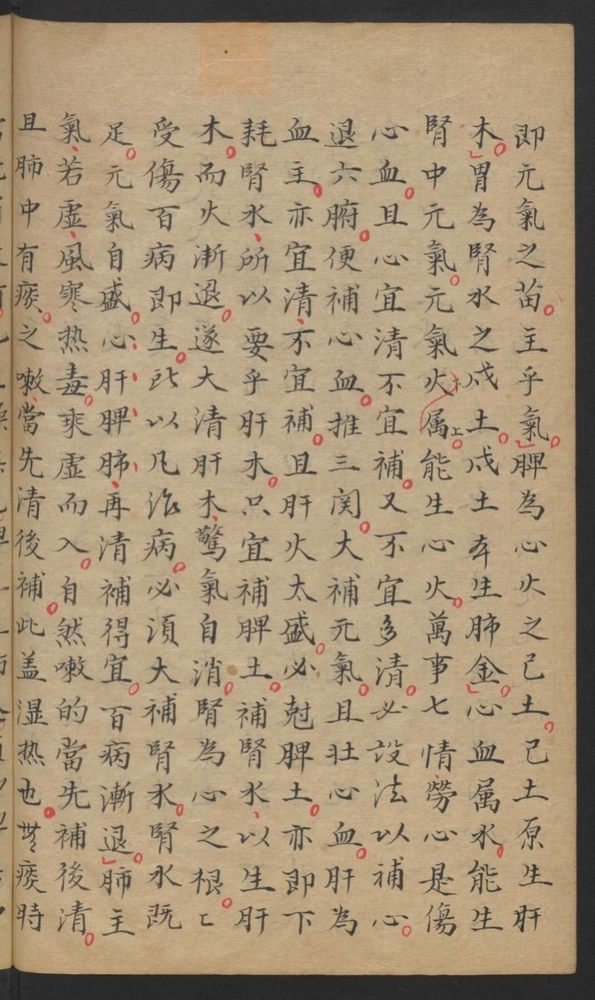 即元氣之苗主乎氣脾為心火之己土己土原生肝
木胃為腎水之戊土戊土夲生肺金心血属水能生
腎中元氣元氣火属上能生心火萬事七情勞心是傷
心血且心宜清不宜補又不宜多清必設法以補心
退六腑便補心血推三関大補元氣且壯心血肝為
血主亦宜清不宜補且肝火太盛必尅脾土亦即下
耗腎水所以要乎肝木只宜補脾土補腎水以生肝
木而火漸退遂大清肝木驚氣自消腎為心之根匕
受傷百病即生此以凡治病必須大補腎水腎水既
足元氣自盛心肝脾肺再清補得宜百病漸退肺主
氣若虛風寒热毒乘虛而入自然嗽的當先補後清
且肺中有痰之嗽當先清後補此盖湿热也無痰時